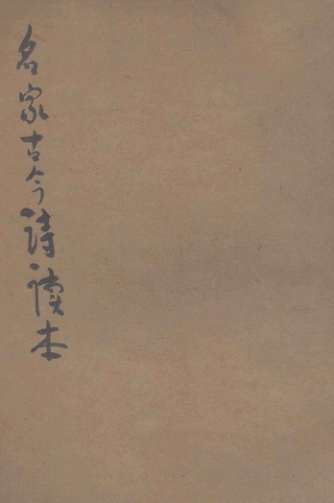 名家古今詩讀本